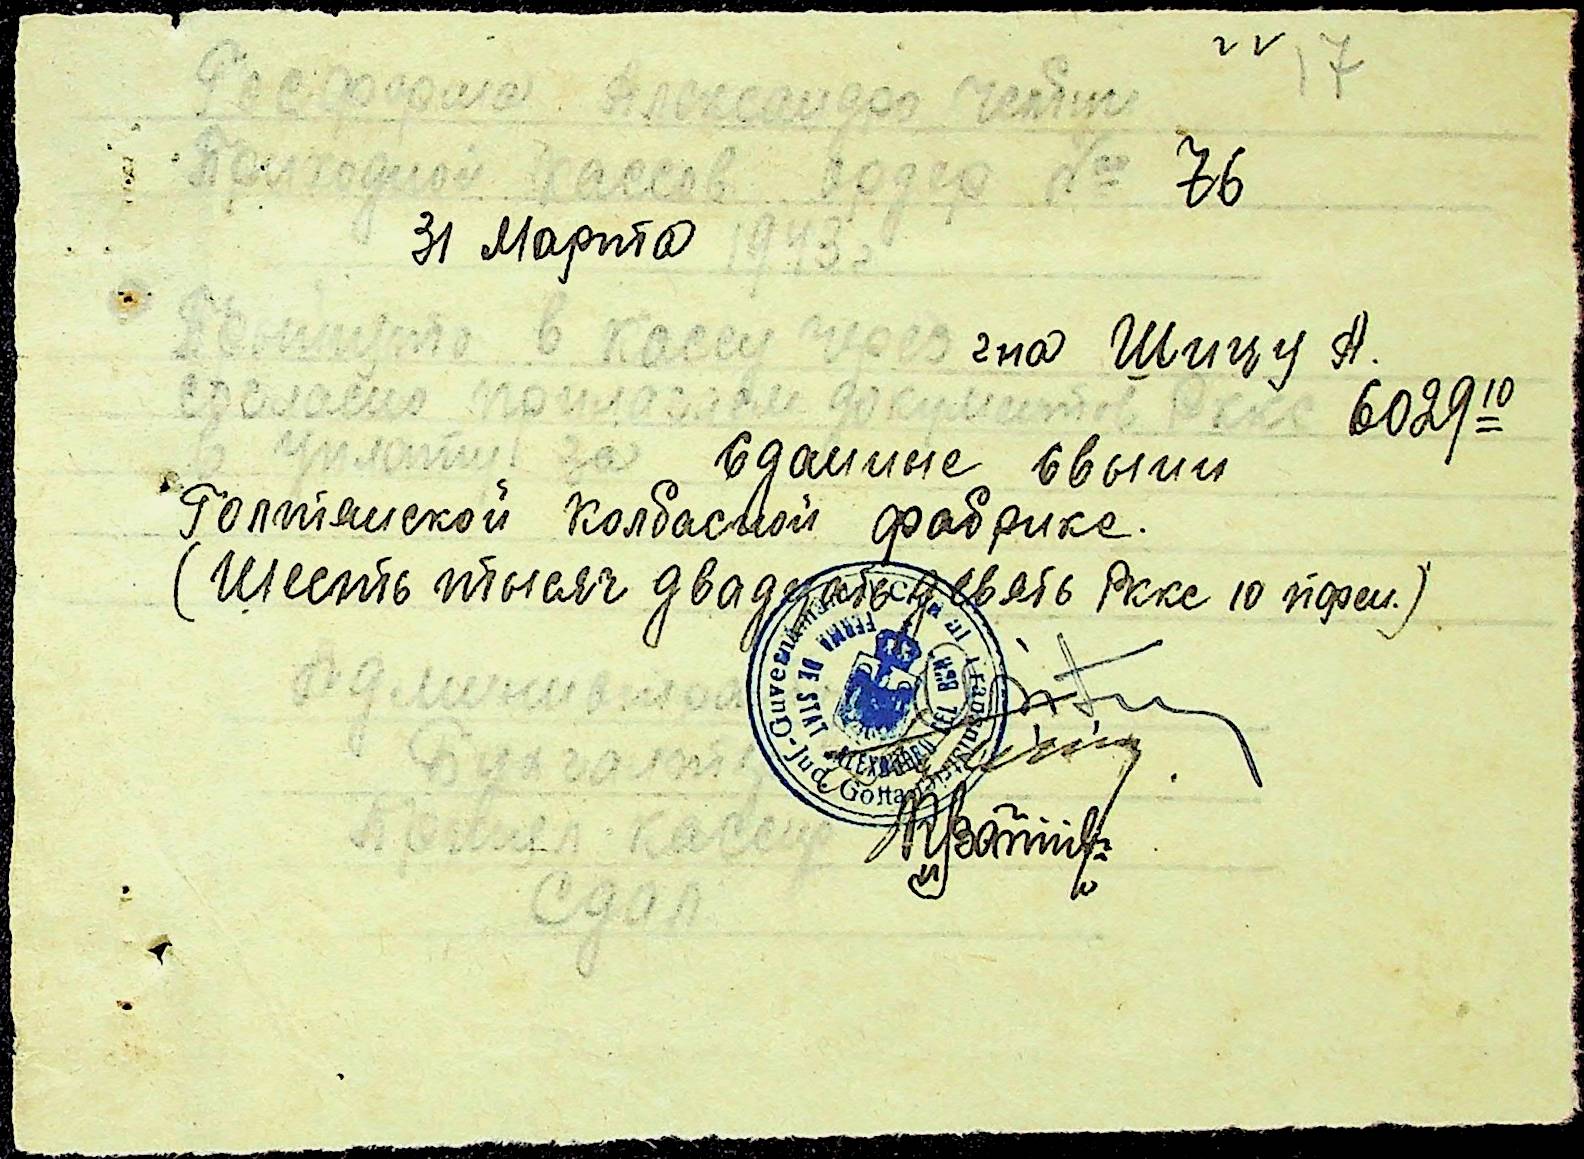 17
Госферма Александро Челби
Приходной кассов ордер № 76
31 Марта 1943 г
Принято в кассу через г-на Шицу А.
согласно прилагаем документов Рккс 6029 10
в уплату за сданные свыни
Голтянской колбасной фабрике.
(Шесть тысяч двадцать девять Рккс 10 пфен.)
Администратор
Бухгалтер
Принял кассир
Сдал
Guvernământul Transnistriei
Jud. Golta
FERMA DE STAT
ALEXANDRU CEL BUN